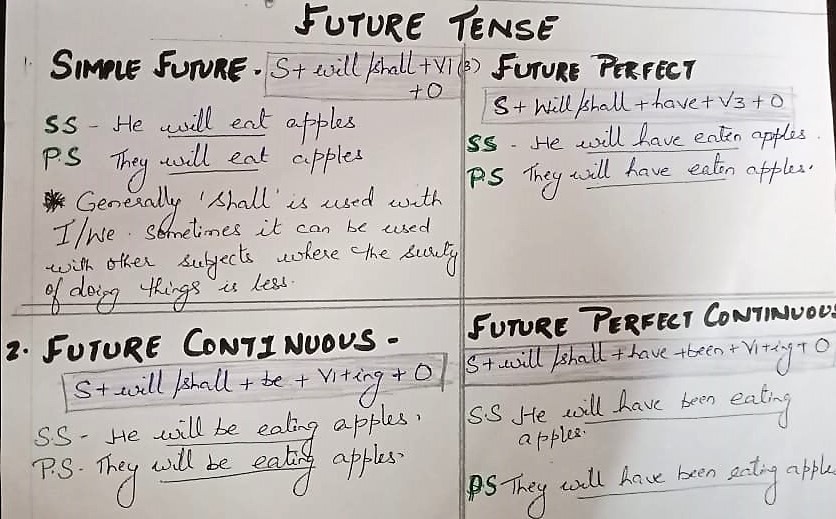 FUTURE TENSE
1. SIMPLE FUTURE. S+ will /shall + V1
+O
SS - He will eat apples
P.S They will eat apples
* Generally 'shall' is used with
I/We. Sometimes it can be used
with other subjects where the surity
of doing things is less.
3) FUTURE PERFECT
S + Will/shall + have + V3 + O
SS - He will have eaten apples.
P.S They will have eaten apples.
2. FUTURE CONTINUOUS -
S + will /shall + be + V1 + ing + O
S.S - He will be eating apples.
P.S. They will be eating apples.
FUTURE PERFECT CONTINUOUS
S + will /shall + have + been + V1 + ing + O
S.S He will have been eating
apples.
PS They will have been eating apple